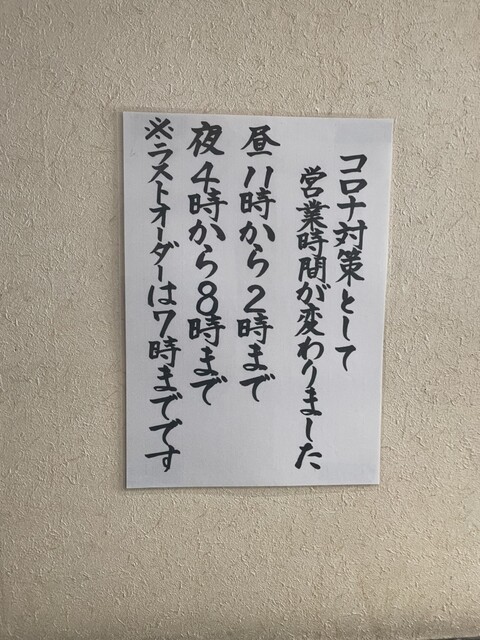 コロナ対策として
営業時間が変わりました
昼 11時から2時まで
夜 4時から8時まで
※ラストオーダーは7時までです